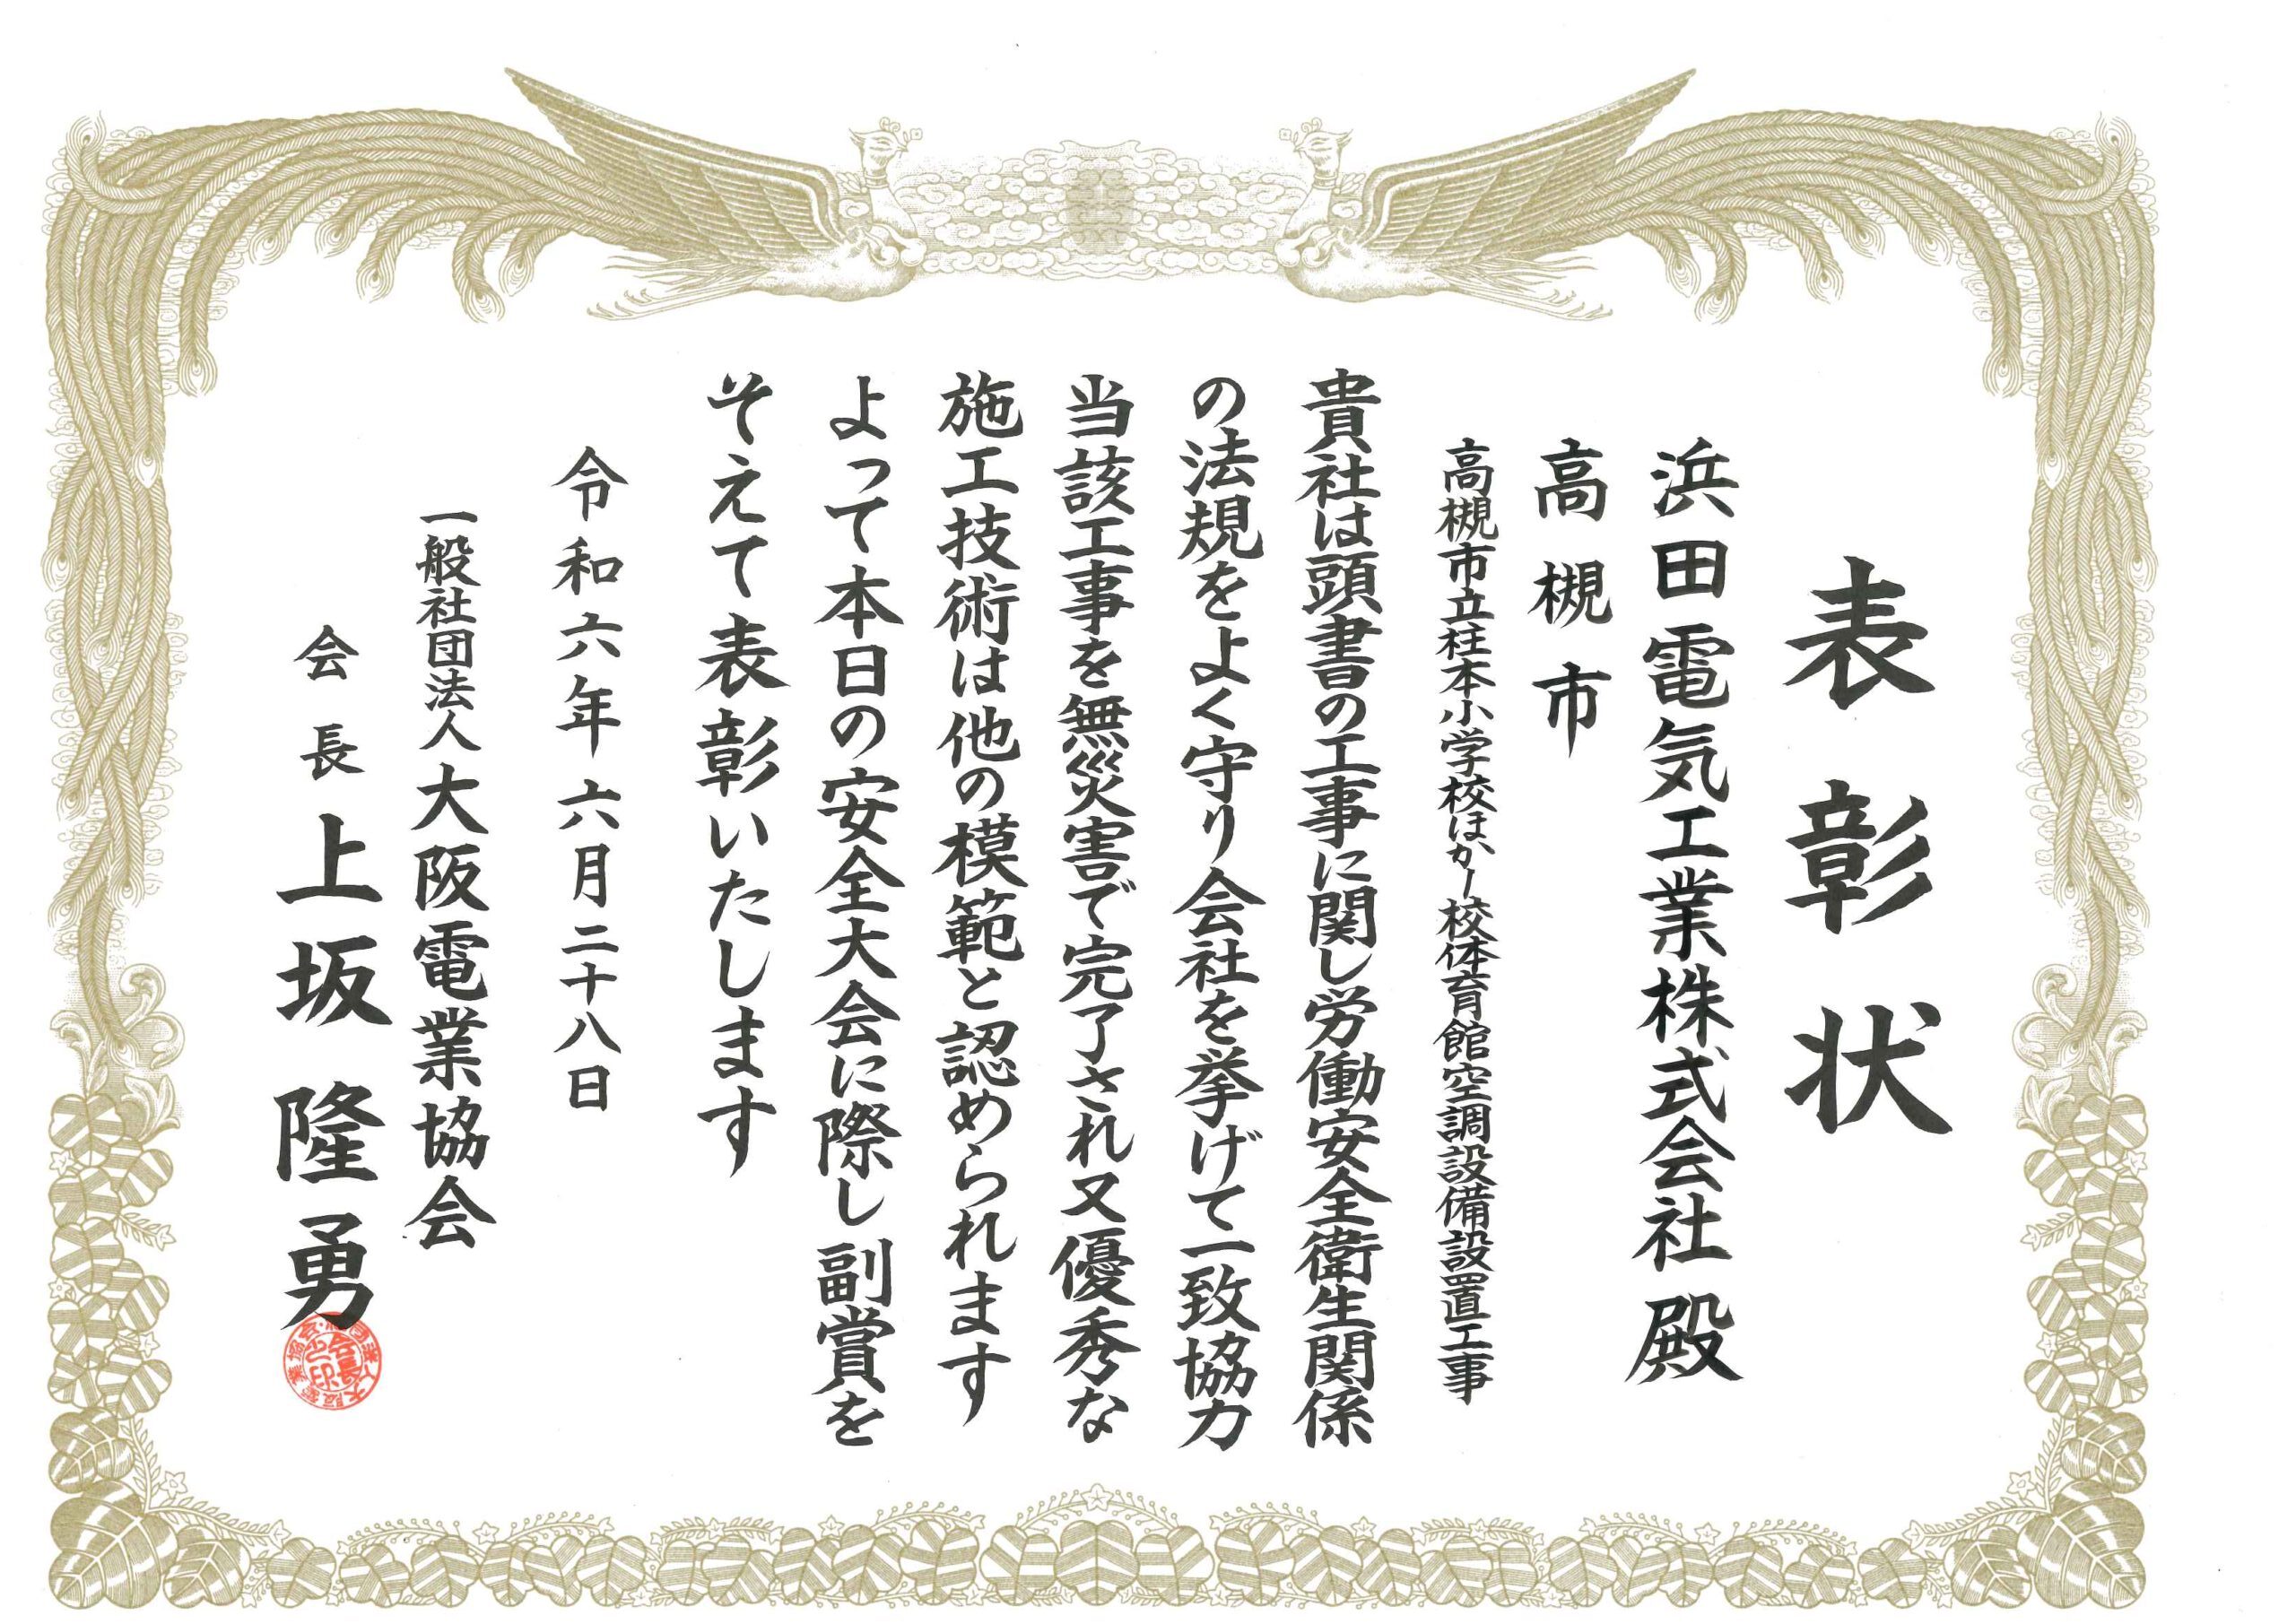 表彰状
浜田電気工業株式会社殿
高槻市
高槻市立柱本小学校ほか1校体育館空調設備設置工事
貴社は頭書の工事に関し労働安全衛生関係
の法規をよく守り会社を挙げて一致協力
当該工事を無災害で完了され又優秀な
施工技術は他の模範と認められます
よって本日の安全大会に際し副賞を
そえて表彰いたします
令和六年六月二十八日
一般社団法人大阪電業協会
会長上坂隆勇